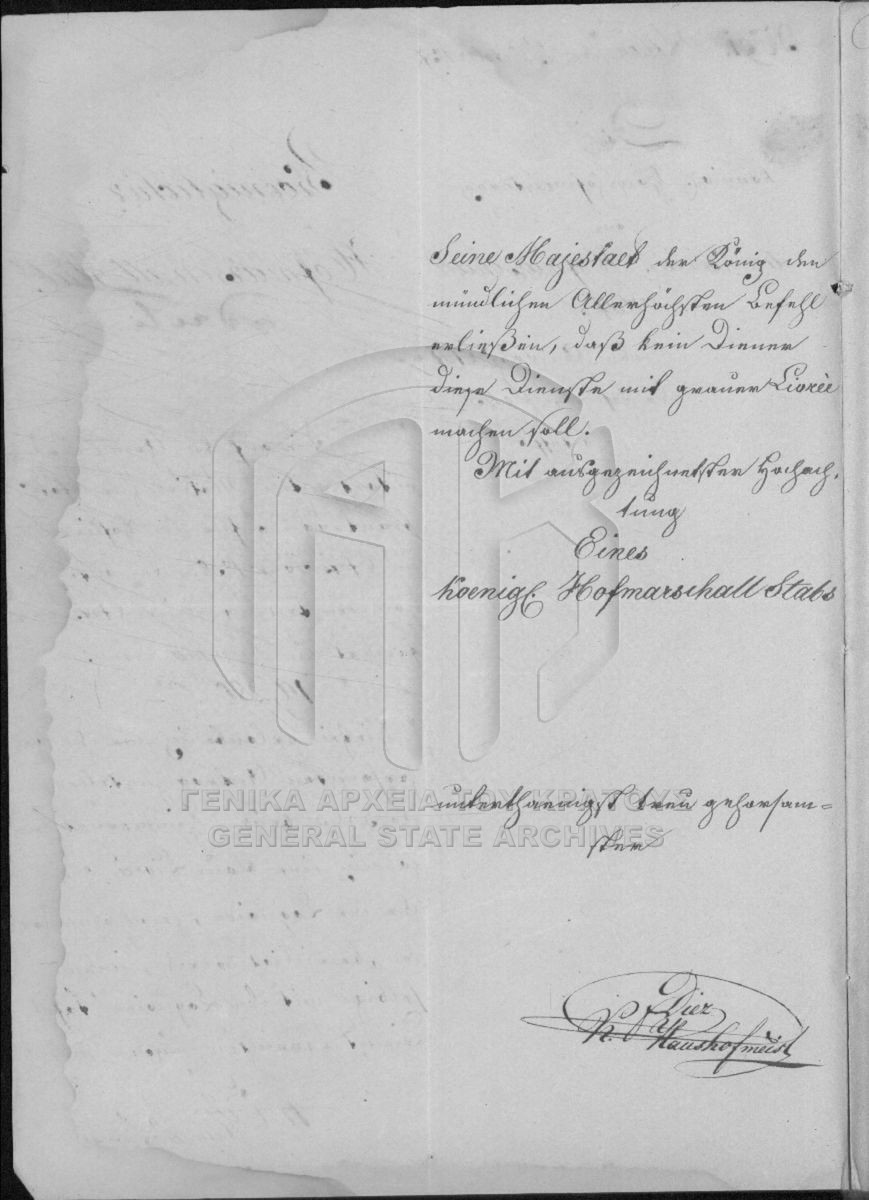 Seine Majestaet der König den
mündlichen Allerhöchsten Befehl
erließen, daß kein Diener
diese Dienste mit grauer Livrèe
machen soll.
Mit ausgezeichnetster Hochach,
tung
Eines
Koenigl. Hofmarschall Stabs
unterthaenigst treu gehorsam=
ster
Diez
K. Haushofmeist
ΓΕΝΙΚΑ ΑΡΧΕΙΑ ΤΟΥ ΚΡΑΤΟΥΣ
GENERAL STATE ARCHIVES